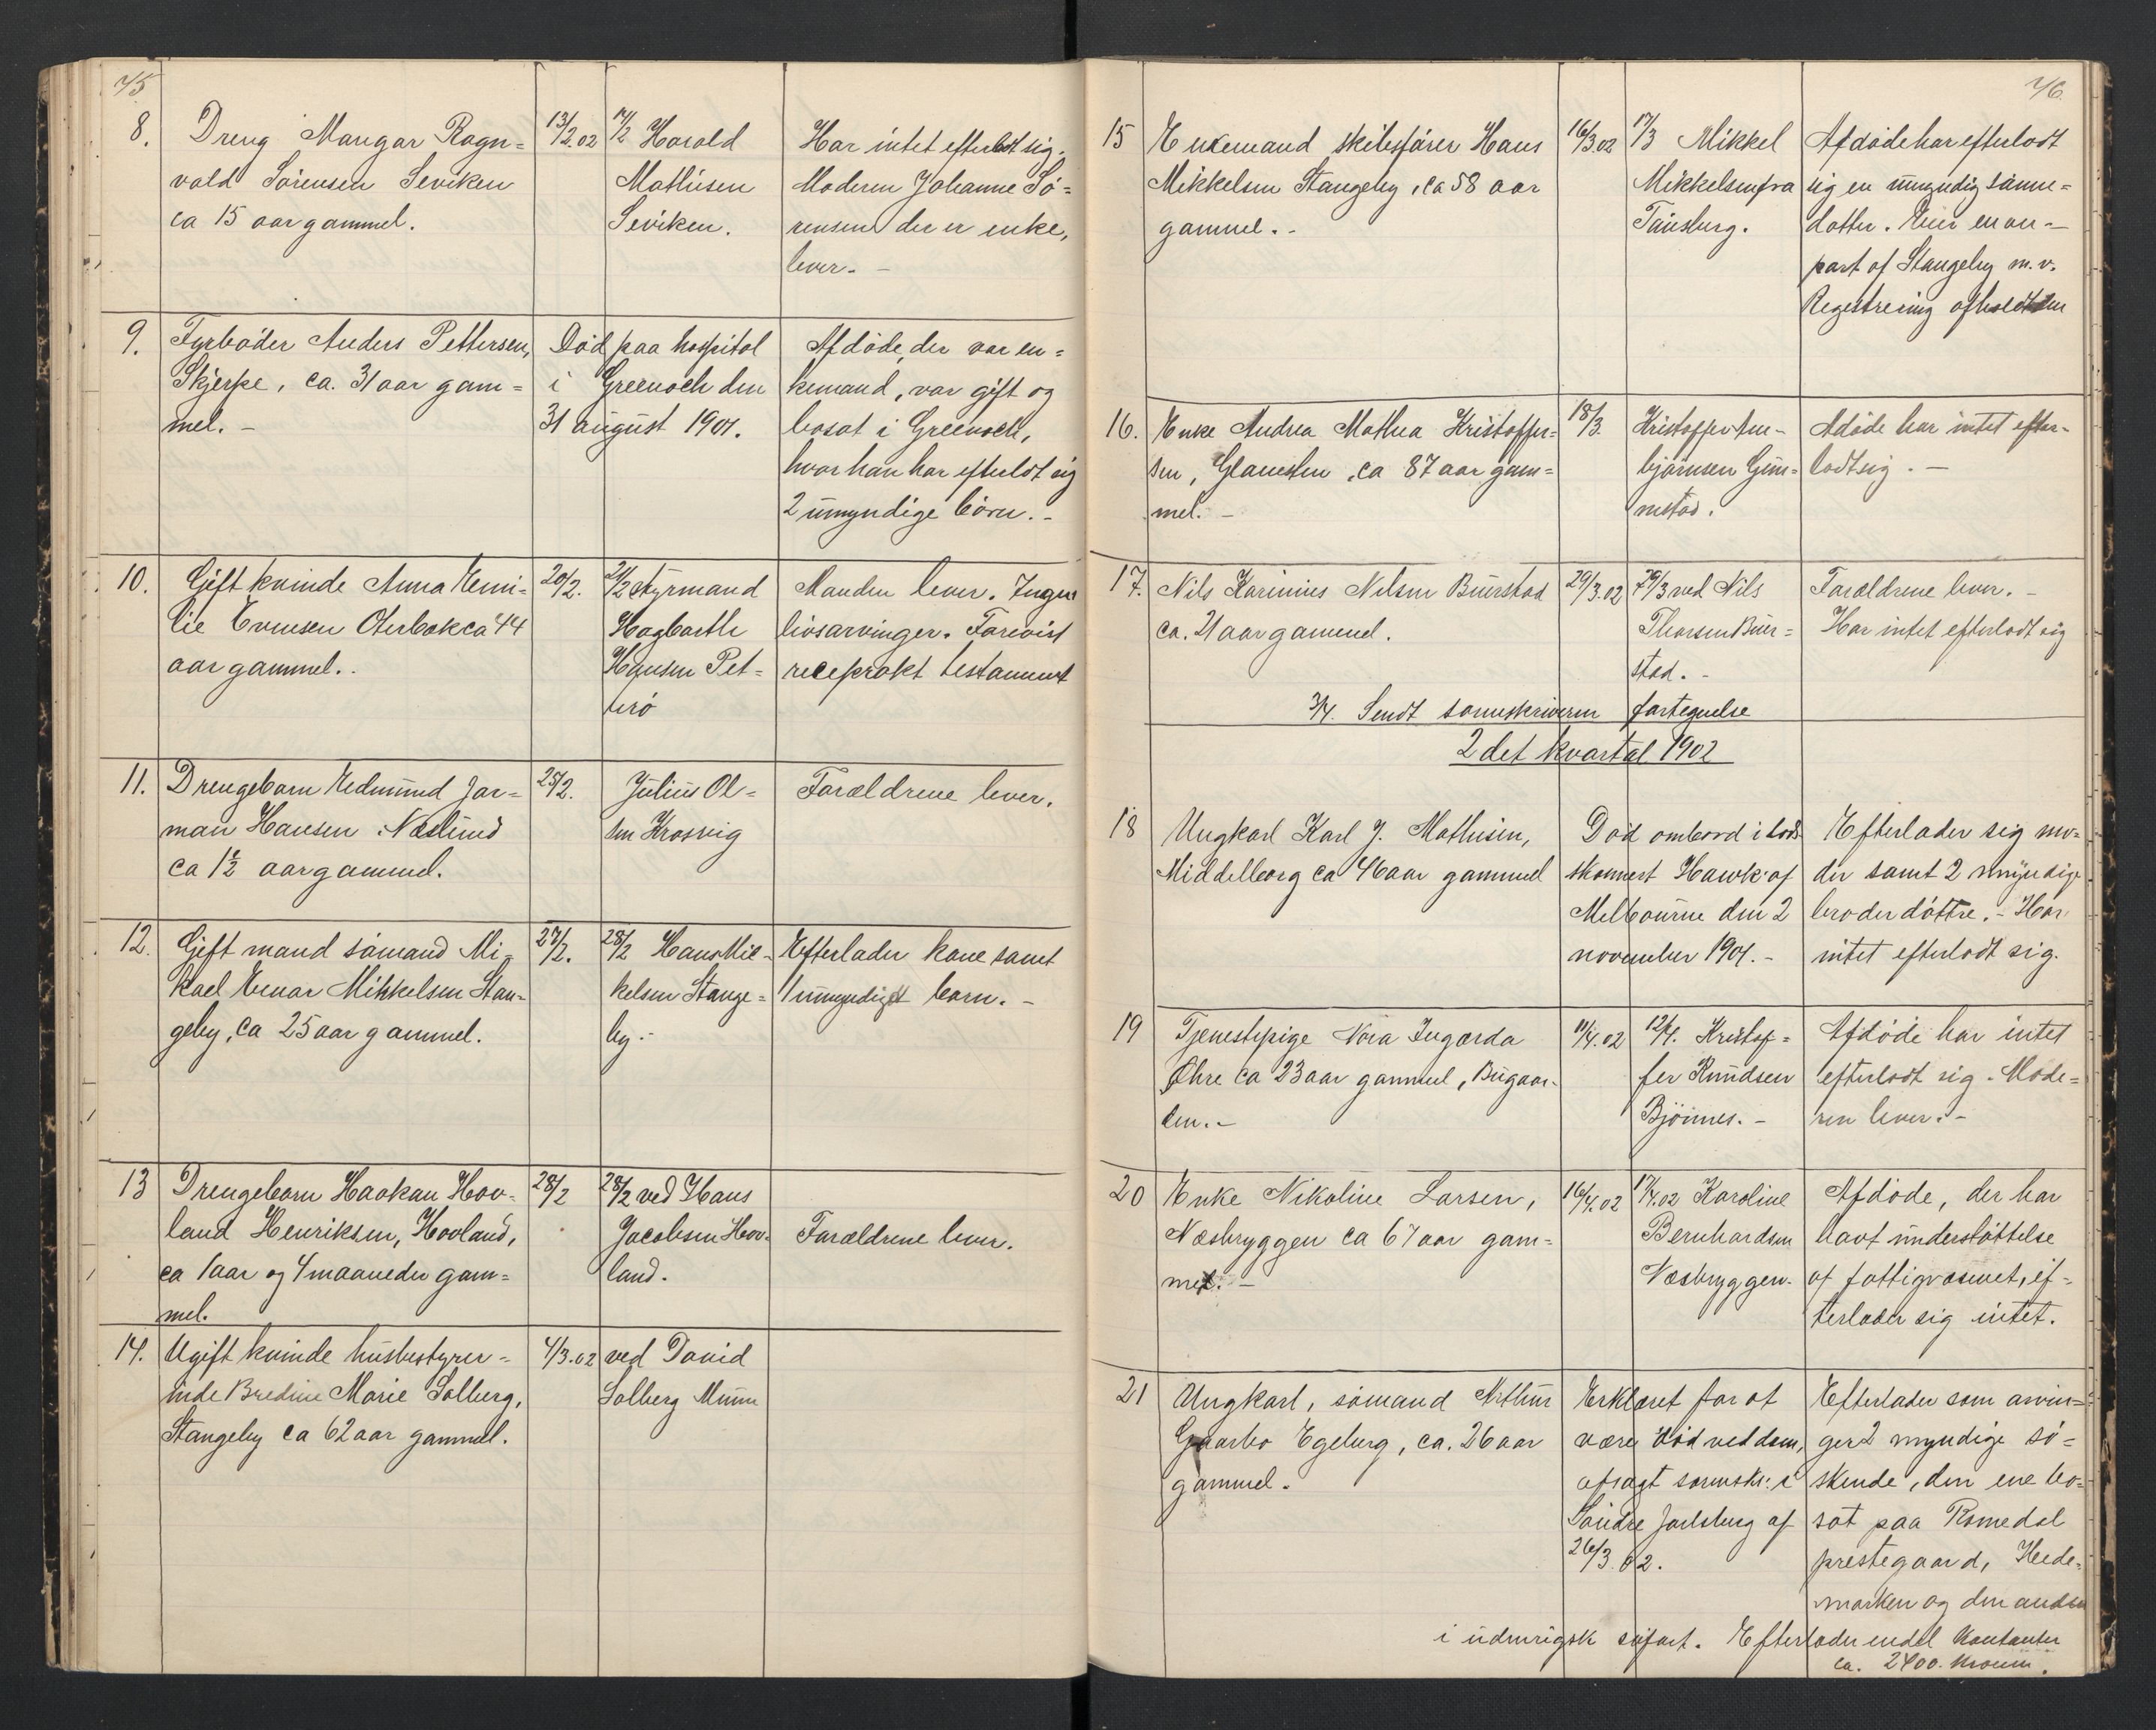 75
8. Dreng Mangar Ragn=
vald Sörensen Seviken
ca 15 aar gammel.
13/2.02
14/2 Harald
Mathisen
Seviken.
Har intet efterladt sig.
Moderen Johanne Sö=
rensen der er enke,
lever. -
9. Fyrböder Anders Pettersen,
Skjerpe, ca. 31 aar gam=
mel. -
Död paa hospital
i Greenoch den
31 august 1901.
Afdöde, der var en=
kemand, var gift og
bosat i Greenoch,
hvor han har efterladt sig
2 umyndige börn. -
10. Gift kvinde Anna Emi-
lie Evensen Oterbæk ca 44
aar gammel..
20/2.
21/2 styrmand
Hagbarth
Hansen Pet=
terö
Manden lever. Ingen
livsarvinger. Forevist
reciprokt testament
11. Drengebarn Edmund Jar=
man Hansen Næslund
ca 1½ aar gammel.
25/2.
Julius Ol=
sen Krosvig
Forældrene lever.
12. Gift mand sömand Mi-
kael Einar Mikkelsen Stan-
geby, ca 25 aar gammel.
27/2.
28/2 Hans Mik-
kelsen Stange=
by. -
Efterlader kone samt
1 umyndigt barn. -
13 Drengebarn Haakan Hov-
land Henriksen, Hovland,
ca 1 aar og 4 maaneder gam=
mel.
28/2
28/2 ved Hans
Jacobsen Hov-
land.
Forældrene lever.
14. Ugift kvinde husbestyrer-
inde Bredine Marie Solberg,
Stangeby ca 62 aar gammel.
4/3.02
ved David
Solberg Mum
76
15 Enkemand skibsförer Hans
Mikkelsen Stangeby, ca 58 aar
gammel. -
16/3.02
17/3 Mikkel
Mikkelsen fra
Tönsberg.
Afdöde har efterladt
sig en umyndig sönne=
datter. Eier en an-
part af Stangeby m. v.
Registrering afholdt den
16. Enke Andrea Mathea Kristoffer=
sen, Glaueslen, ca 87 aar gam=
mel. -
18/3.
Kristoffer Am-
björnsen Gim=
mstad.
Afdöde har intet efter-
ladt sig. -
17. Nils Karinius Nilsen Buerstad
ca. 21 aar gammel.
29/3.02
29/3 ved Nils
Thorsen Buer=
stad. -
Forældrene lever. -
Har intet efterladt sig
3/4. Sendt sorenskriveren fortegnelse
2det kvartal 1902
18 Ungkarl Karl J. Mathisen,
Middelborg ca 46 aar gammel
Död ombord i lods
skonnert Hawk af
Melbourne den 2
november 1901. -
Efterlader sig mo=
der samt 2 umyndige
broderdöttre. - Har
intet efterladt sig.
19 Tjenestepige Nora Ingarda
Öhre ca 23 aar gammel, Bugaar-
den. -
11/4.02
12/4. Kristof=
fer Knudsen
Bjönnes. -
Afdöde har intet
efterladt sig. Mode=
ren lever. -
20 Enke Nikoline Larsen,
Næsbryggen ca 67 aar gam=
mel. -
16/4.02
17/4.02 Karoline
Bernhardsen
Næsbryggen.
Afdöde, der har
havt understöttelse
af fattigvæsenet, ef=
terlader sig intet.
21 Ungkarl, sömand Arthur
Gaarbo Egeberg, ca. 26 aar
gammel.
Erklæret for at
være död ved dom,
afsagt sorenskr: i
Söndre Jarlsberg af
26/3.02.
Efterlader som arvin=
ger 2 myndige sö=
skende, den ene bo=
sat paa Romedal
prestegaard, Hede=
marken og den anden
i udenrigsk söfart. Efterlader endel kontanter
ca. 2400. kroner.